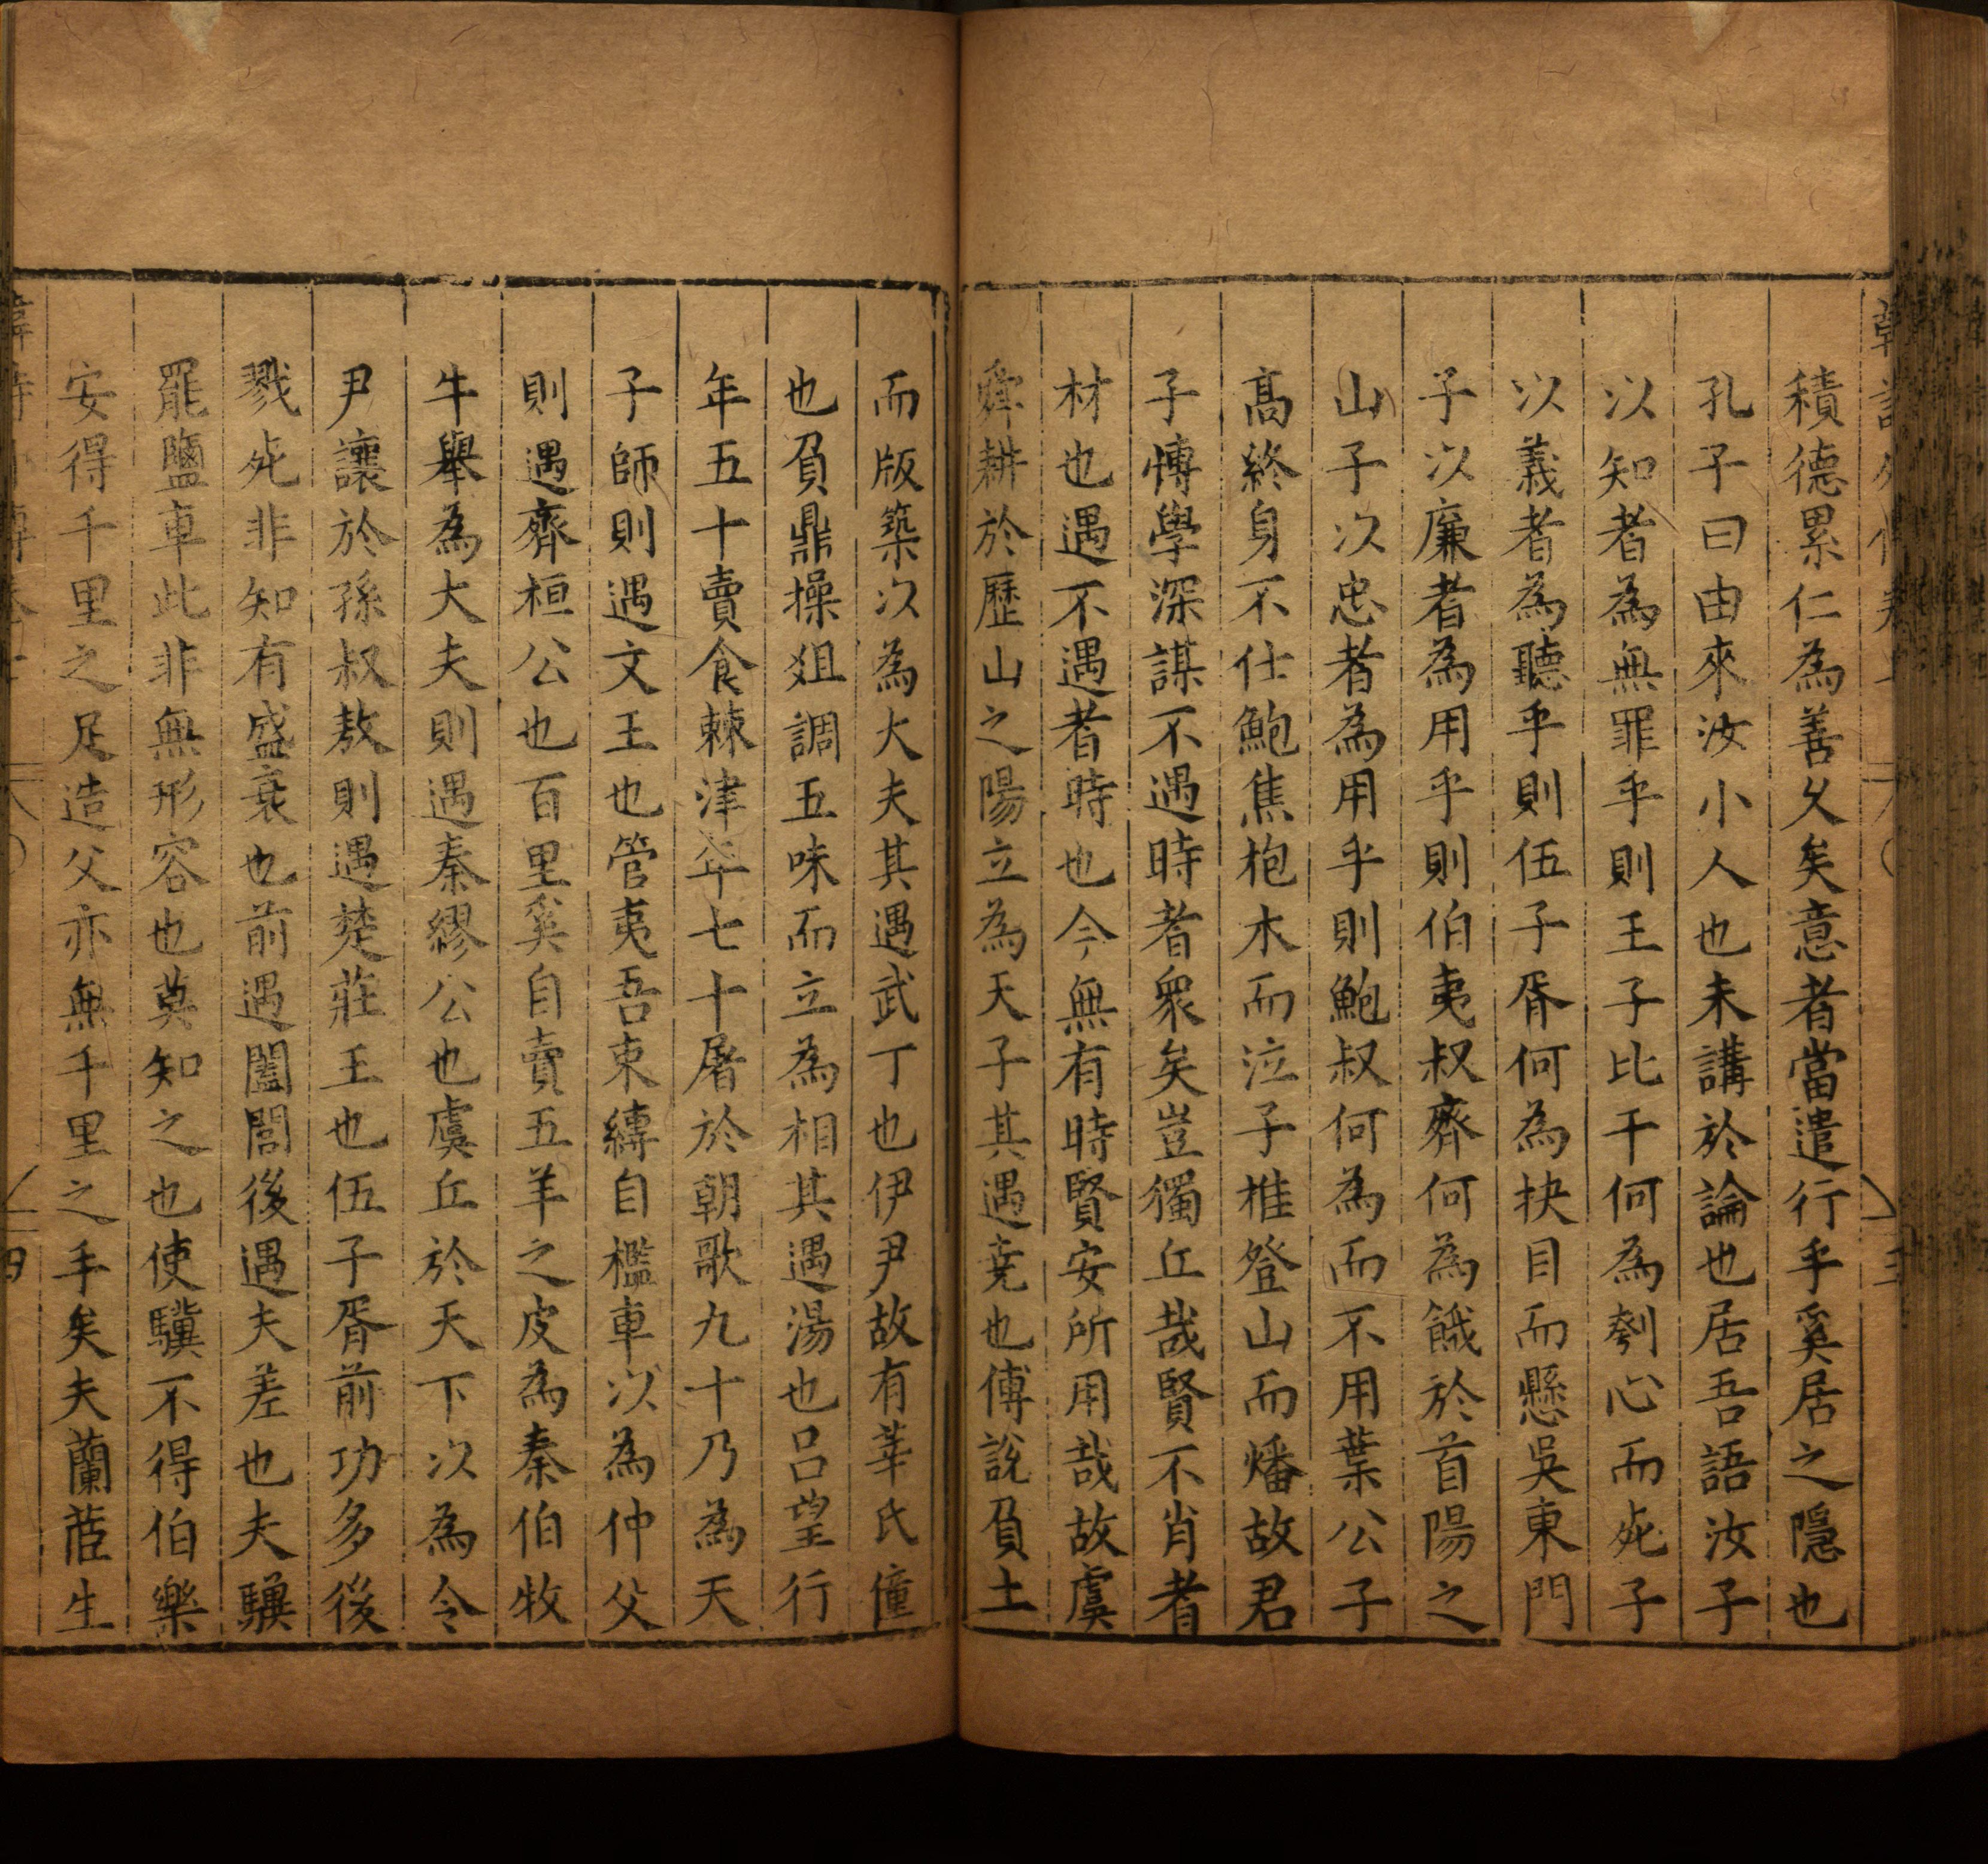 積德累仁為善乆矣意者當遣行乎奚居之隱也
孔子曰由來汝小人也未講於論也居吾語汝子
以知者為無罪乎則王子比干何為刳心而死子
以義者為聽乎則伍子胥何為抉目而懸吳東門
子以廉者為用乎則伯夷叔齊何為餓於首陽之
山子以忠者為用乎則鮑叔何為而不用葉公子
髙終身不仕鮑焦枹木而泣子椎登山而燔故君
子愽學深謀不遇時者衆矣豈獨丘哉賢不肖者
材也遇不遇者時也今無有時賢安所用哉故虞
舜耕於歷山之陽立為天子其遇堯也傅說負土
而版築以為大夫其遇武丁也伊尹故有莘氏僮
也負鼎操俎調五味而立為相其遇湯也呂望行
年五十賣食棘津年七十屠於朝歌九十乃為天
子師則遇文王也管夷吾束縳自檻車以為仲父
則遇齊桓公也百里奚自賣五羊之皮為秦伯牧
牛舉為大夫則遇秦繆公也虞丘於天下以為令
尹讓於孫叔敖則遇楚莊王也伍子胥前功多後
戮死非知有盛衰也前遇闔閭後遇夫差也夫驥
罷鹽車此非無形容也莫知之也使驥不得伯樂
安得千里之足造父亦無千里之手矣夫蘭茝生